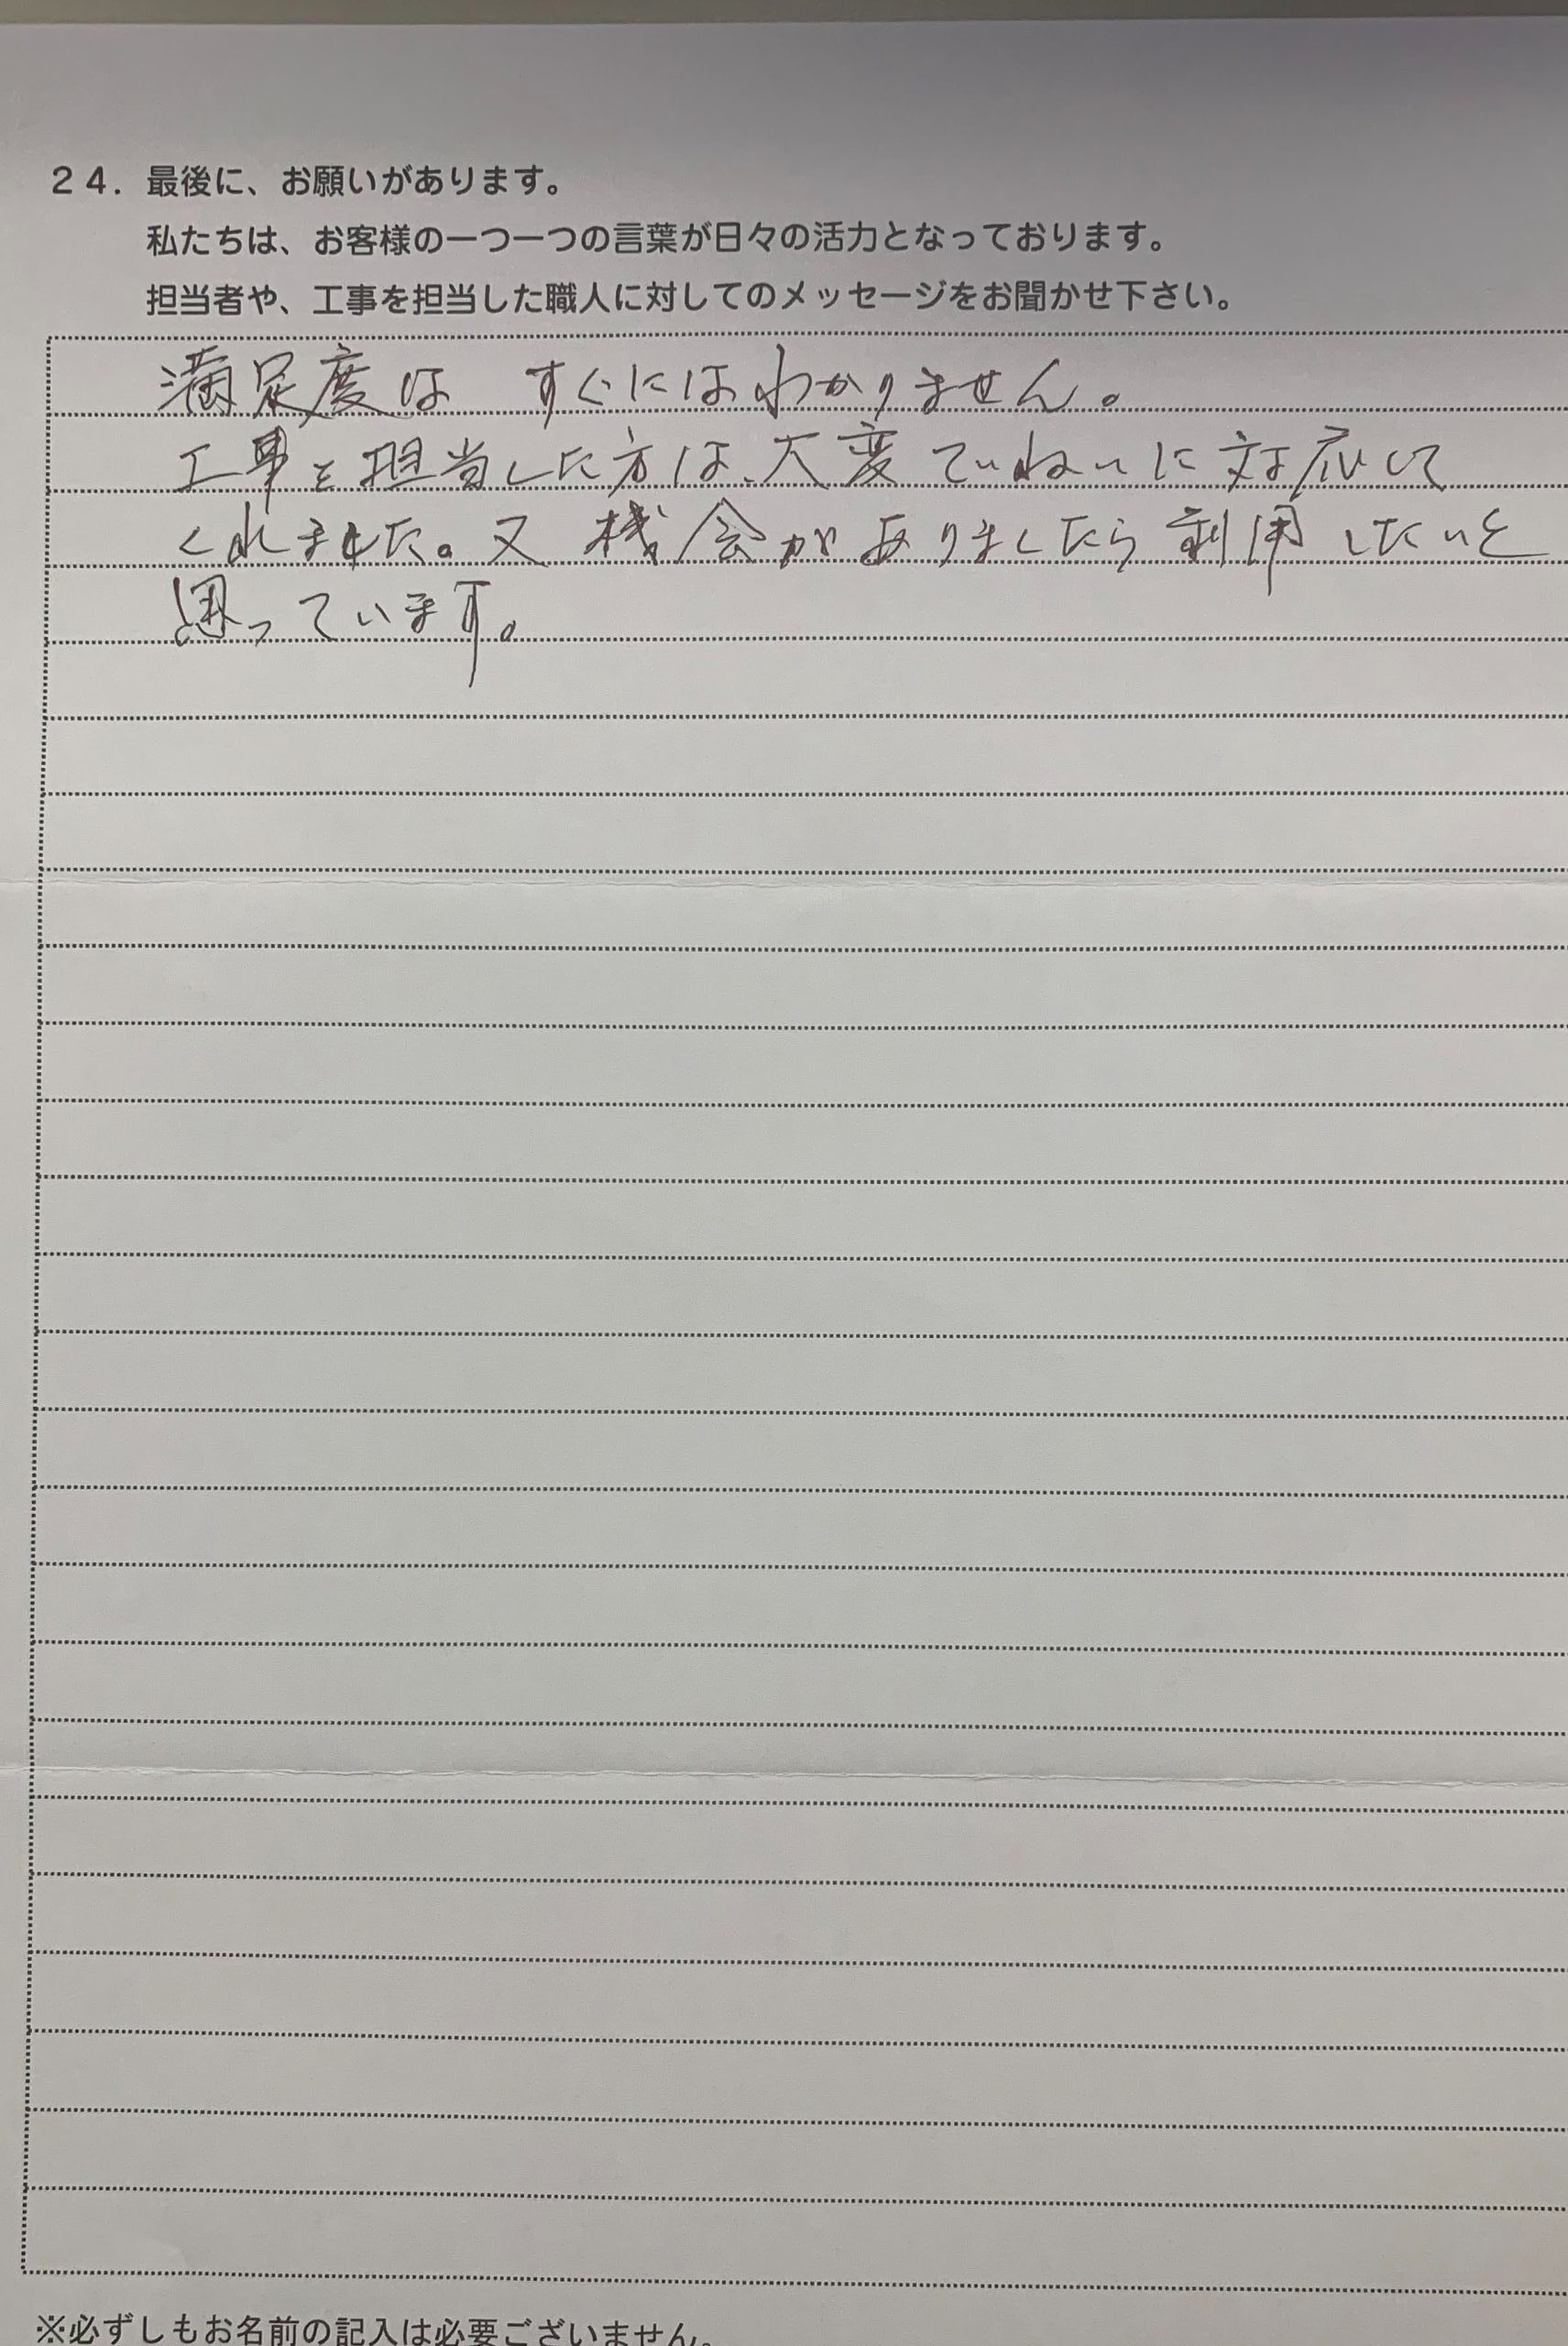 24. 最後に、お願いがあります。
私たちは、お客様の一つ一つの言葉が日々の活力となっております。
担当者や、工事を担当した職人に対してのメッセージをお聞かせ下さい。
満足度は すぐにはわかりません。
工事を担当した方は、大変ていねいに対応して
くれました。又 機会がありましたら利用したいと
思っています。
※必ずしもお名前の記入は必要ございません。